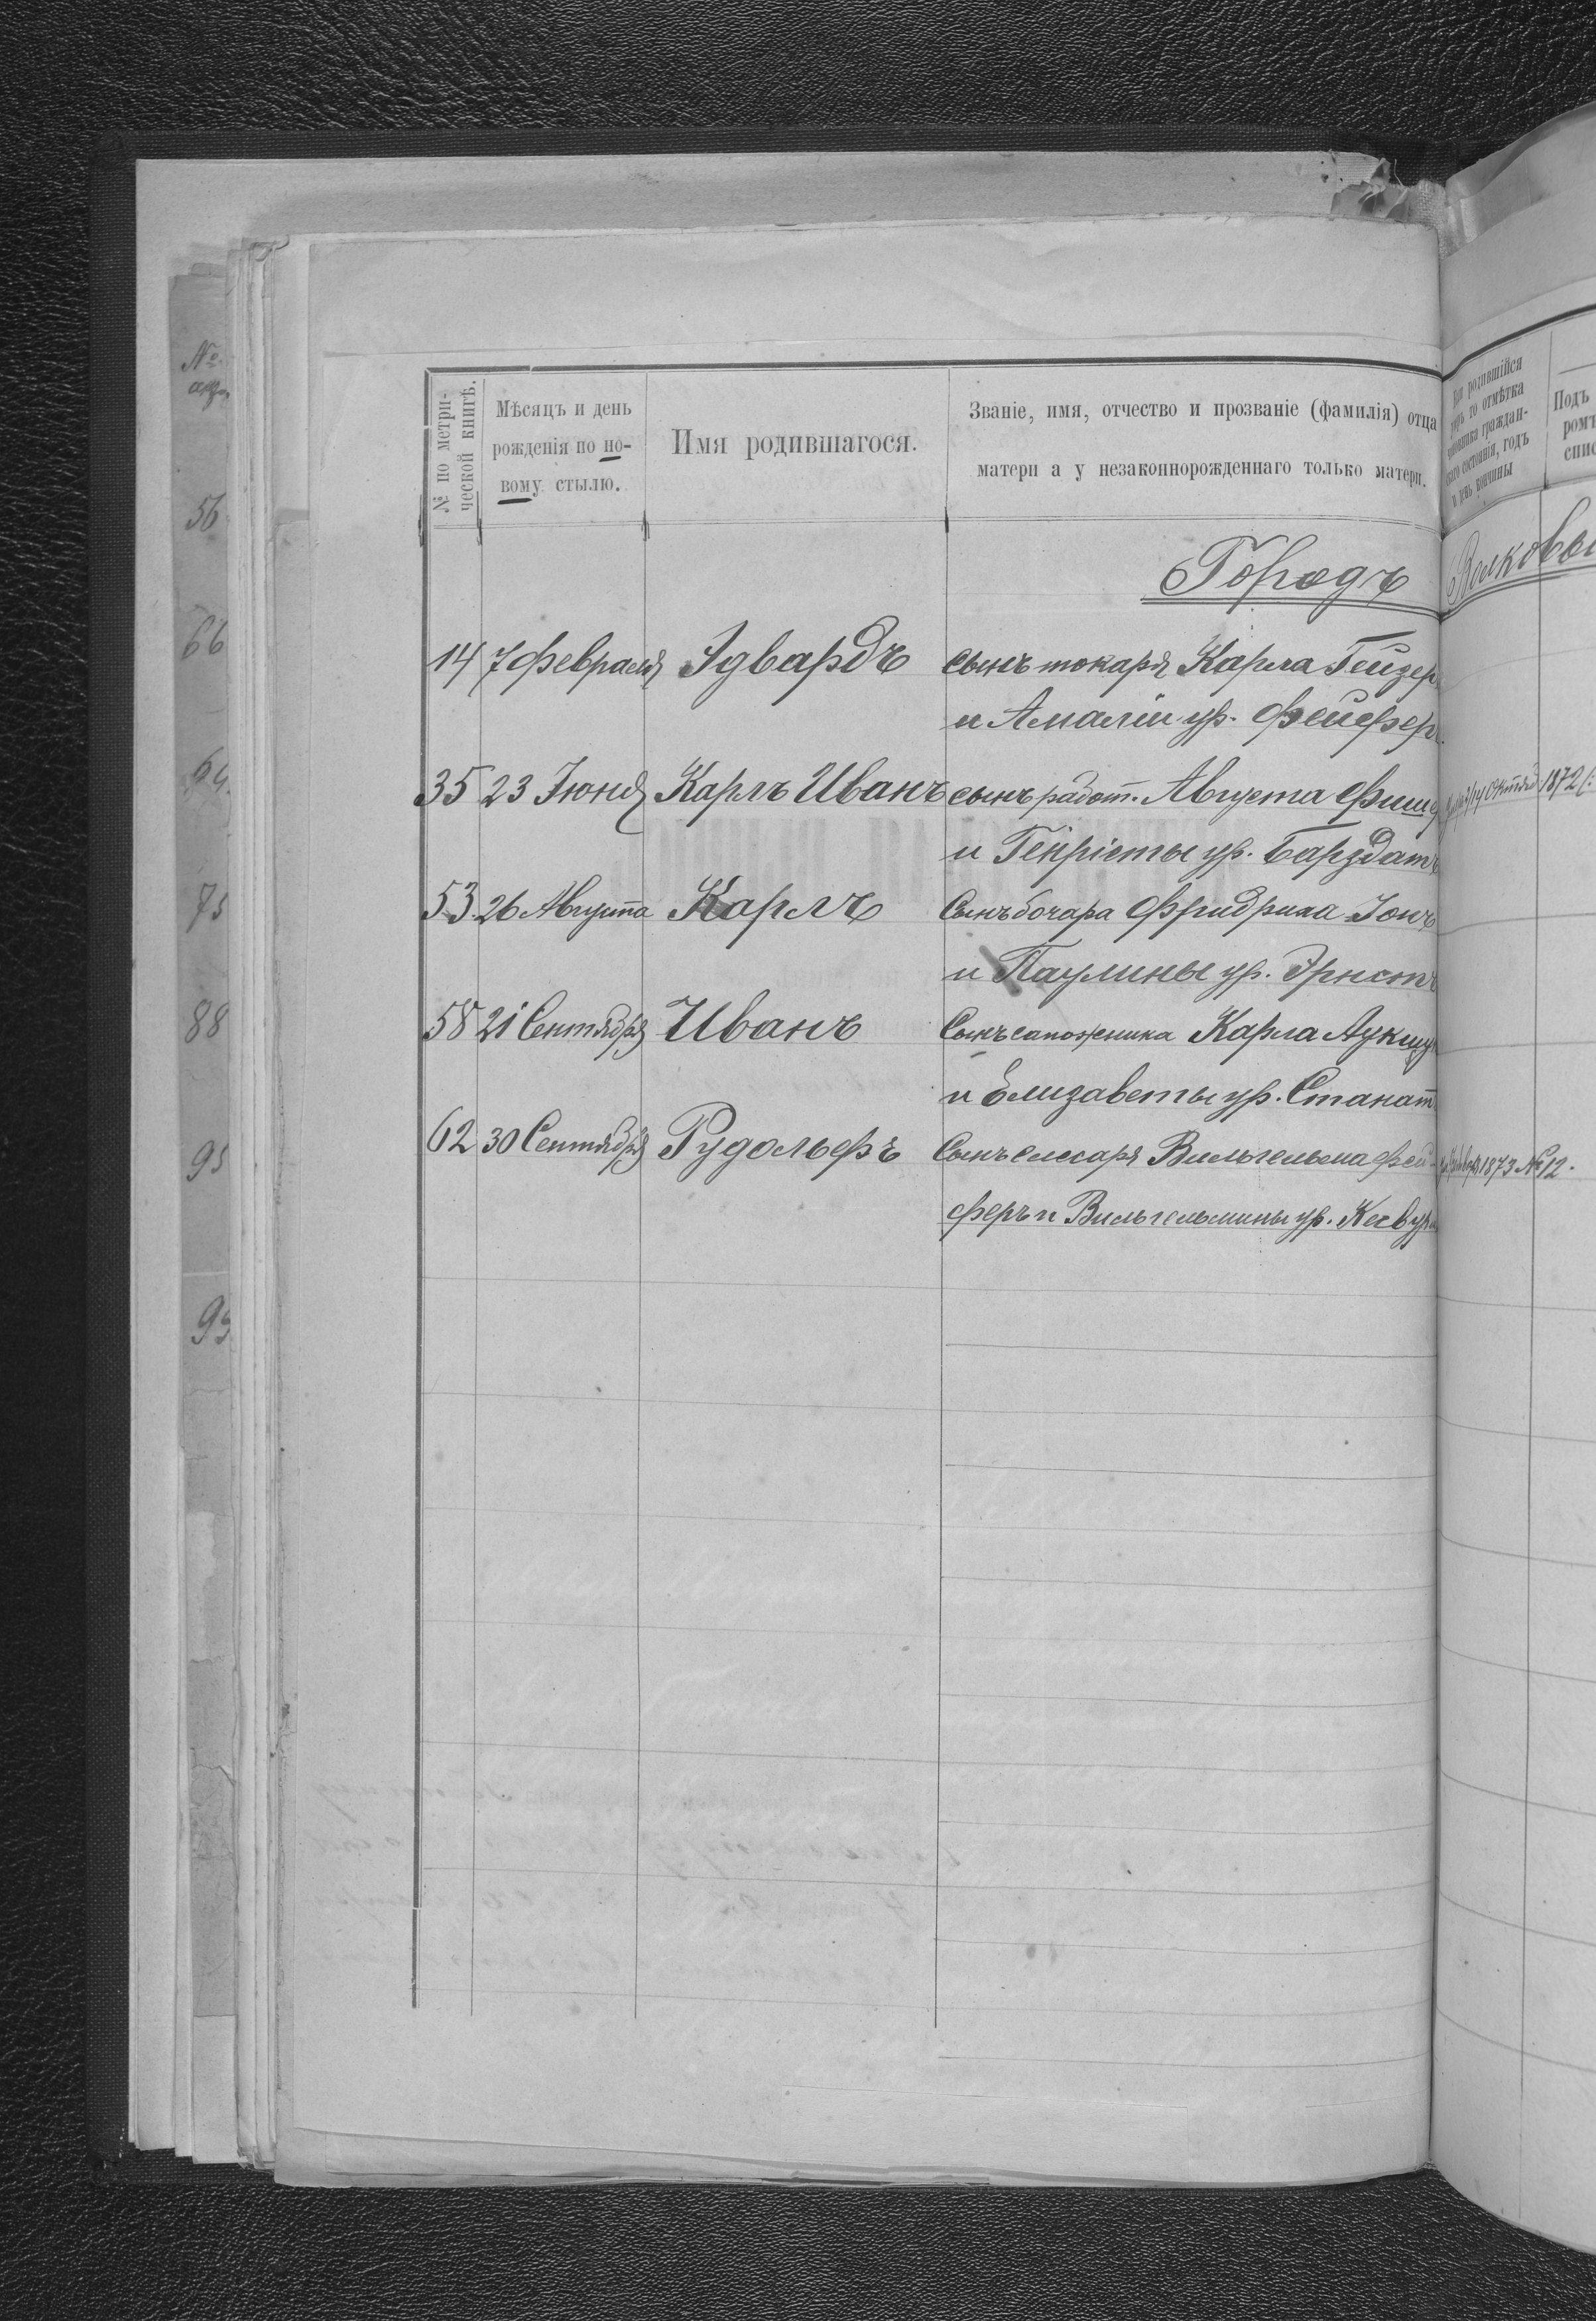 №
56
66
64
75
88
95
99
№ по метри-
ческой книгѣ.
Мѣсяцъ и день
рожденія по но-
вому стылю.
Имя родившагося.
Званіе, имя, отчество и прозваніе (фамилія) отца
матери а у незаконнорожденнаго только матери.
родившійся
то отмѣтка
граждан-
состоянія, годъ
и день кончины
Подъ
Городъ
14 7 Февраля Эдвардъ сынъ токаря Карла Гейзер
и Амаліи ур. Фейфер
35 23 Іюня Карлъ Иванъ сынъ работ. Августа Фиш
и Генріеты ур. Барздатъ
14 Октября 1872
53 26 Августа Карлъ Сынъ бочара Фридриха Іонъ
и Паулины ур. Эрнстъ
58 21 Сентября Иванъ Сынъ сапожника Карла
и Елизаветы ур. Станат
62 30 Сентября Рудольфъ Сынъ слесаря Вильгельма Фей-
феръ и Вильгельмины ур.
1873 № 12.